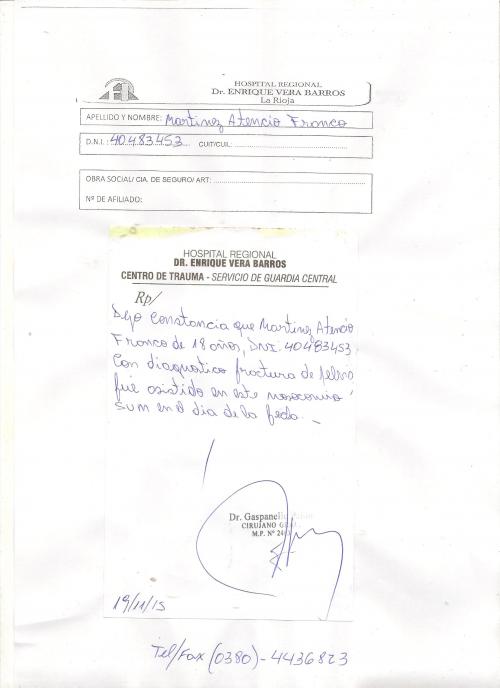 HOSPITAL REGIONAL
Dr. ENRIQUE VERA BARROS
La Rioja
APELLIDO Y NOMBRE: Martinez Atencio Franco
D.N.I.: 40483453 CUIT/CUIL:
OBRA SOCIAL/ CIA. DE SEGURO/ ART:
Nº DE AFILIADO:
HOSPITAL REGIONAL
DR. ENRIQUE VERA BARROS
CENTRO DE TRAUMA - SERVICIO DE GUARDIA CENTRAL
Rp/
Dejo constancia que Martinez Atencio
Franco de 18 años, DNI: 40483453
Con diagnostico fractura de
fué asistido en este nosocomio
en el dia de la fecha.
Dr. Gaspanello
CIRUJANO
M.P. Nº
19/11/15
Tel/Fax (0380)-4436823